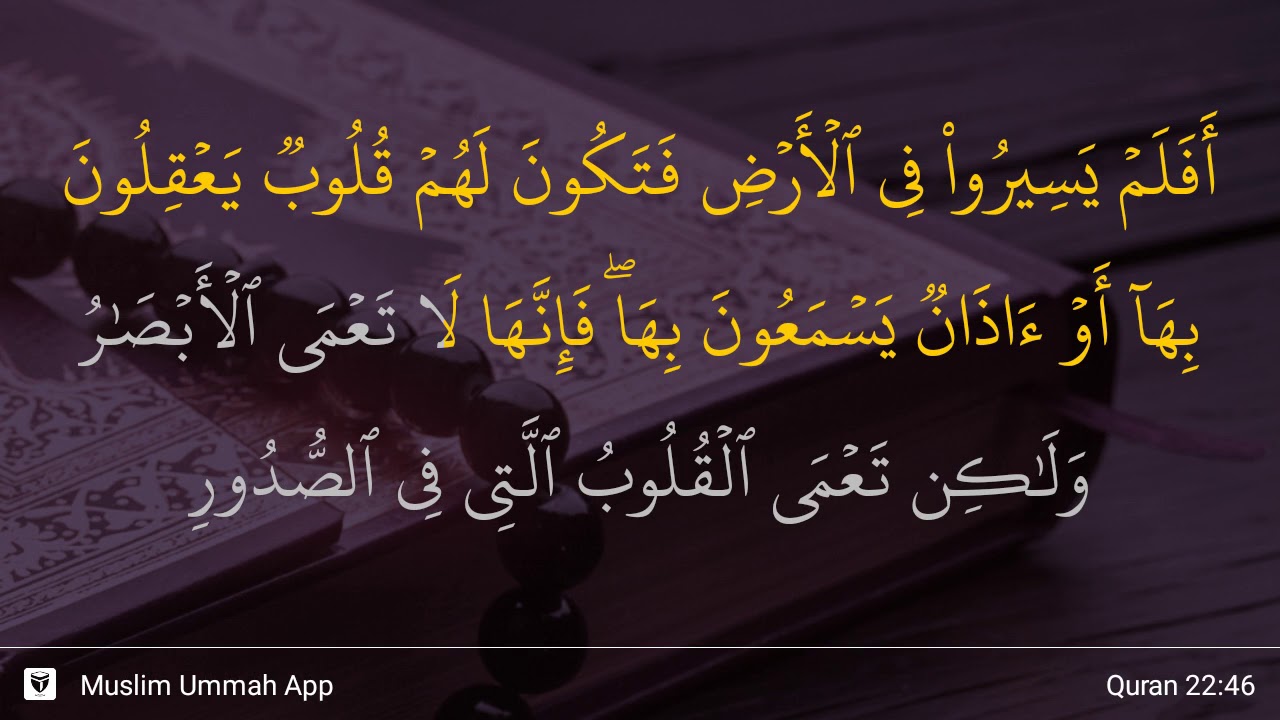 أَفَلَمۡ يَسِيرُواْ فِى ٱلۡأَرۡضِ فَتَكُونَ لَهُمۡ قُلُوبٌ يَعۡقِلُونَ
بِهَآ أَوۡ ءَاذَانٌ يَسۡمَعُونَ بِهَاۖ فَإِنَّهَا لَا تَعۡمَى ٱلۡأَبۡصَـٰرُ
وَلَـٰكِن تَعۡمَى ٱلۡقُلُوبُ ٱلَّتِى فِى ٱلصُّدُورِ
Muslim Ummah App
Quran 22:46